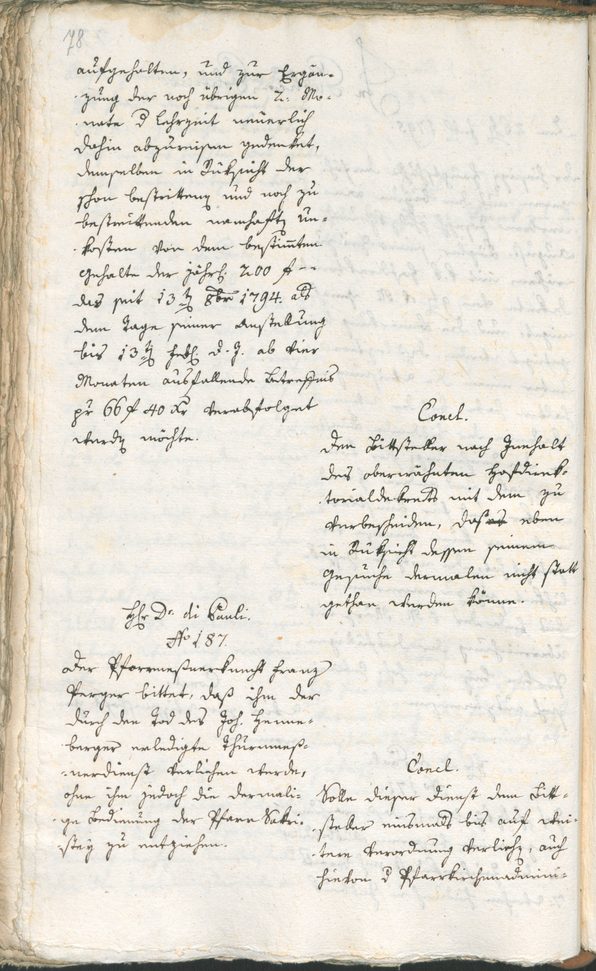 78.
aufgehalten, und zur Ergän-
zung der noch übrigen 2. Mo-
nate d Lehrzeit neuerlich
dahin abzureisen gedenket,
demselben in Rüksicht der
schon bestrittenen und noch zu
bestreittenden namhaften Un-
kosten von dem bestimten
Gehalte der jährl. 200 f --
das seit 13ten 8ber 1794. als
dem Tage seiner Anstellung
bis 13ten Feb. d. J. ab vier
Monaten ausfallende Betreffnis
pr 66 f 40 Kr verabfolget
werden möchte.
Concl.
Den Bittsteller nach Innhalt
des oberwähnten Hofdirek-
torialdekrets mit dem zu
verbescheiden, daß es eben
in Rüksicht dessen seinem
Gesuche dermalen nicht statt
gethan werden könne.
Hr. Dr. di Pauli.
No 187.
Der Pfarrmeßnerknecht Franz
Perger bittet, daß ihm der
durch den Tod des Joh. Henne-
berger erledigte Thurnmeß-
nerdienst verliehen werde,
ohne ihm jedoch die dermali-
ge Bedienung der Pfarr Sakri-
stey zu entziehen.
Concl.
Solle dieser Dienst dem Bitt-
steller einsmals bis auf wei-
tere Verordnung verliehen, auch
hievon d Pfarrkirchenadmini-